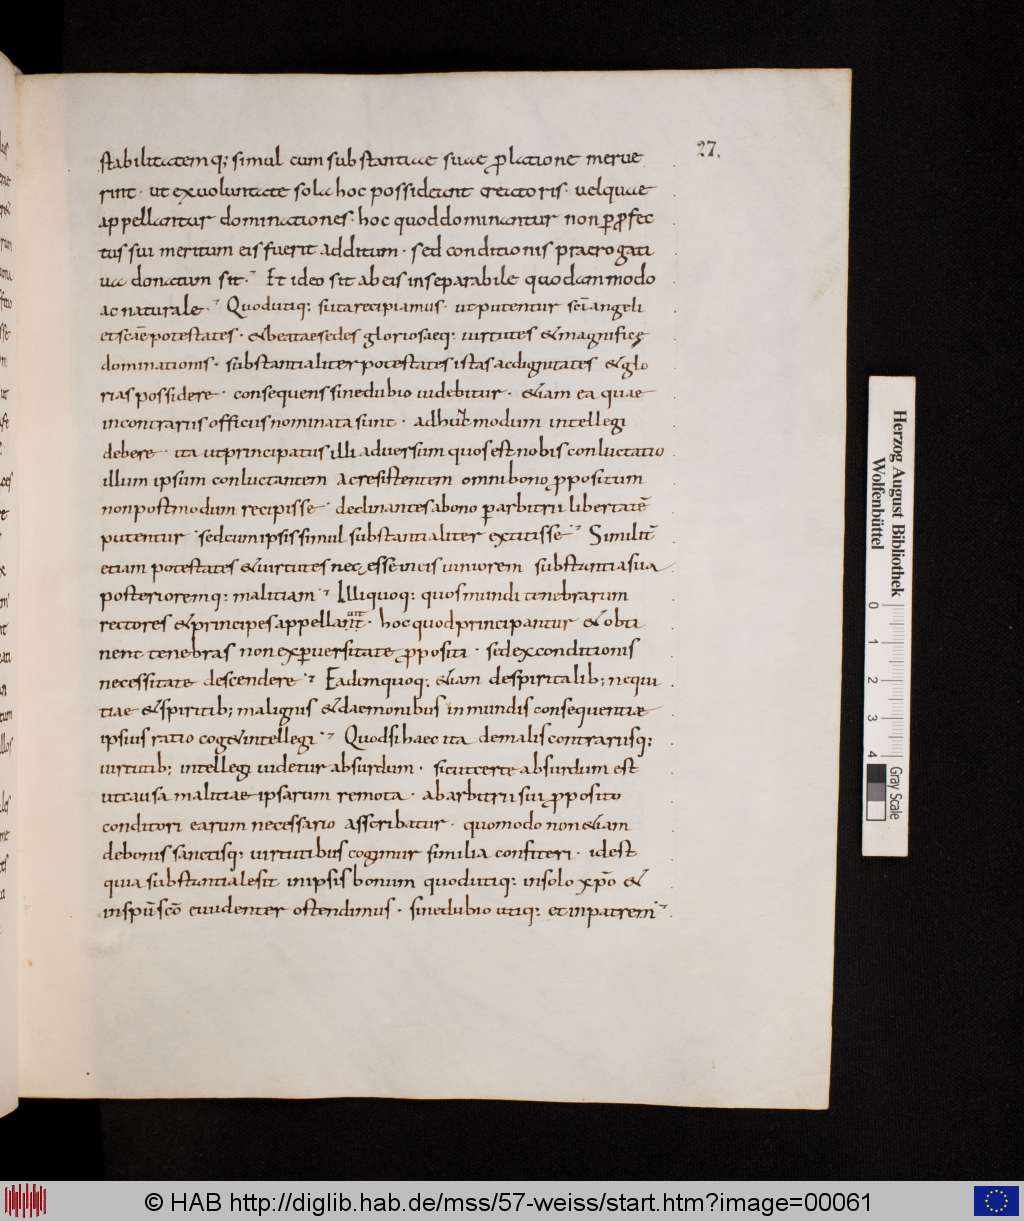 stabilitatemq; simul cum substantiae suae ꝓlatione merue
rint · ut ex uoluntate sola hoc possideant creatoris · uel quae
appellantur dominationes · hoc quod dominantur non ꝑ ꝓfec
tus sui meritum eis fuerit additum · sed conditionis praerogati
ua donatum sit · Et ideo sit ab eis inseparabile quodammodo
ac naturale · Quod utiq: si ita recipiamus · ut putentur sc̄i angeli
et sc̄ae potestates · & beatae sedes gloriosaeq: uirtutes & magnificę
dominationis · substantialiter potestates istas ac dignitates & glo
rias possidere · consequens sine dubio uidebitur · &iam ea quae
in contrariis officiis nominata sunt · ad hunc modum intellegi
debere · ita ut principatus illi aduersum quos est nobis conluctatio
illum ipsum conluctantem ac resistentem omni bono ꝓpositum
non postmodum recipisse · declinantes a bono ꝑ arbitrii libertatē
putentur · sed cum ipsis simul substantialiter extitisse · Similit̄
etiam potestates & uirtutes neq; esse in eis iuniorem substantia sua
posterioremq: malitiam · Illi quoq: quos mundi tenebrarum
rectores & principes appellant · hoc quod principantur & obti
nent tenebras non ex ꝑuersitate ꝓpositi · sed ex conditionis
necessitate descendere · Eadem quoq: &iam de spiritalib; nequi
tiae & spiritib; malignis & daemonibus inmundis consequentiae
ipsius ratio cog& intellegi · Quod si haec ita de malis contrariisq:
uirtutib; intellegi uidetur absurdum · sicut certe absurdum est
ut causa malitiae ipsarum remota · ab arbitrii sui ꝓposito
conditori earum necessario asscribatur · quomodo non &iam
de bonis sanctisq: uirtutibus cogimur similia confiteri · id est
quia substantiale sit in ipsis bonum quod utiq: in solo xp̄o &
in sp̄u sc̄o euidenter ostendimus · sine dubio utiq: et in patrem ·
27.
Herzog August Bibliothek
Wolfenbüttel
0 1 2 3 4
Gray Scale
© HAB http://diglib.hab.de/mss/57-weiss/start.htm?image=00061